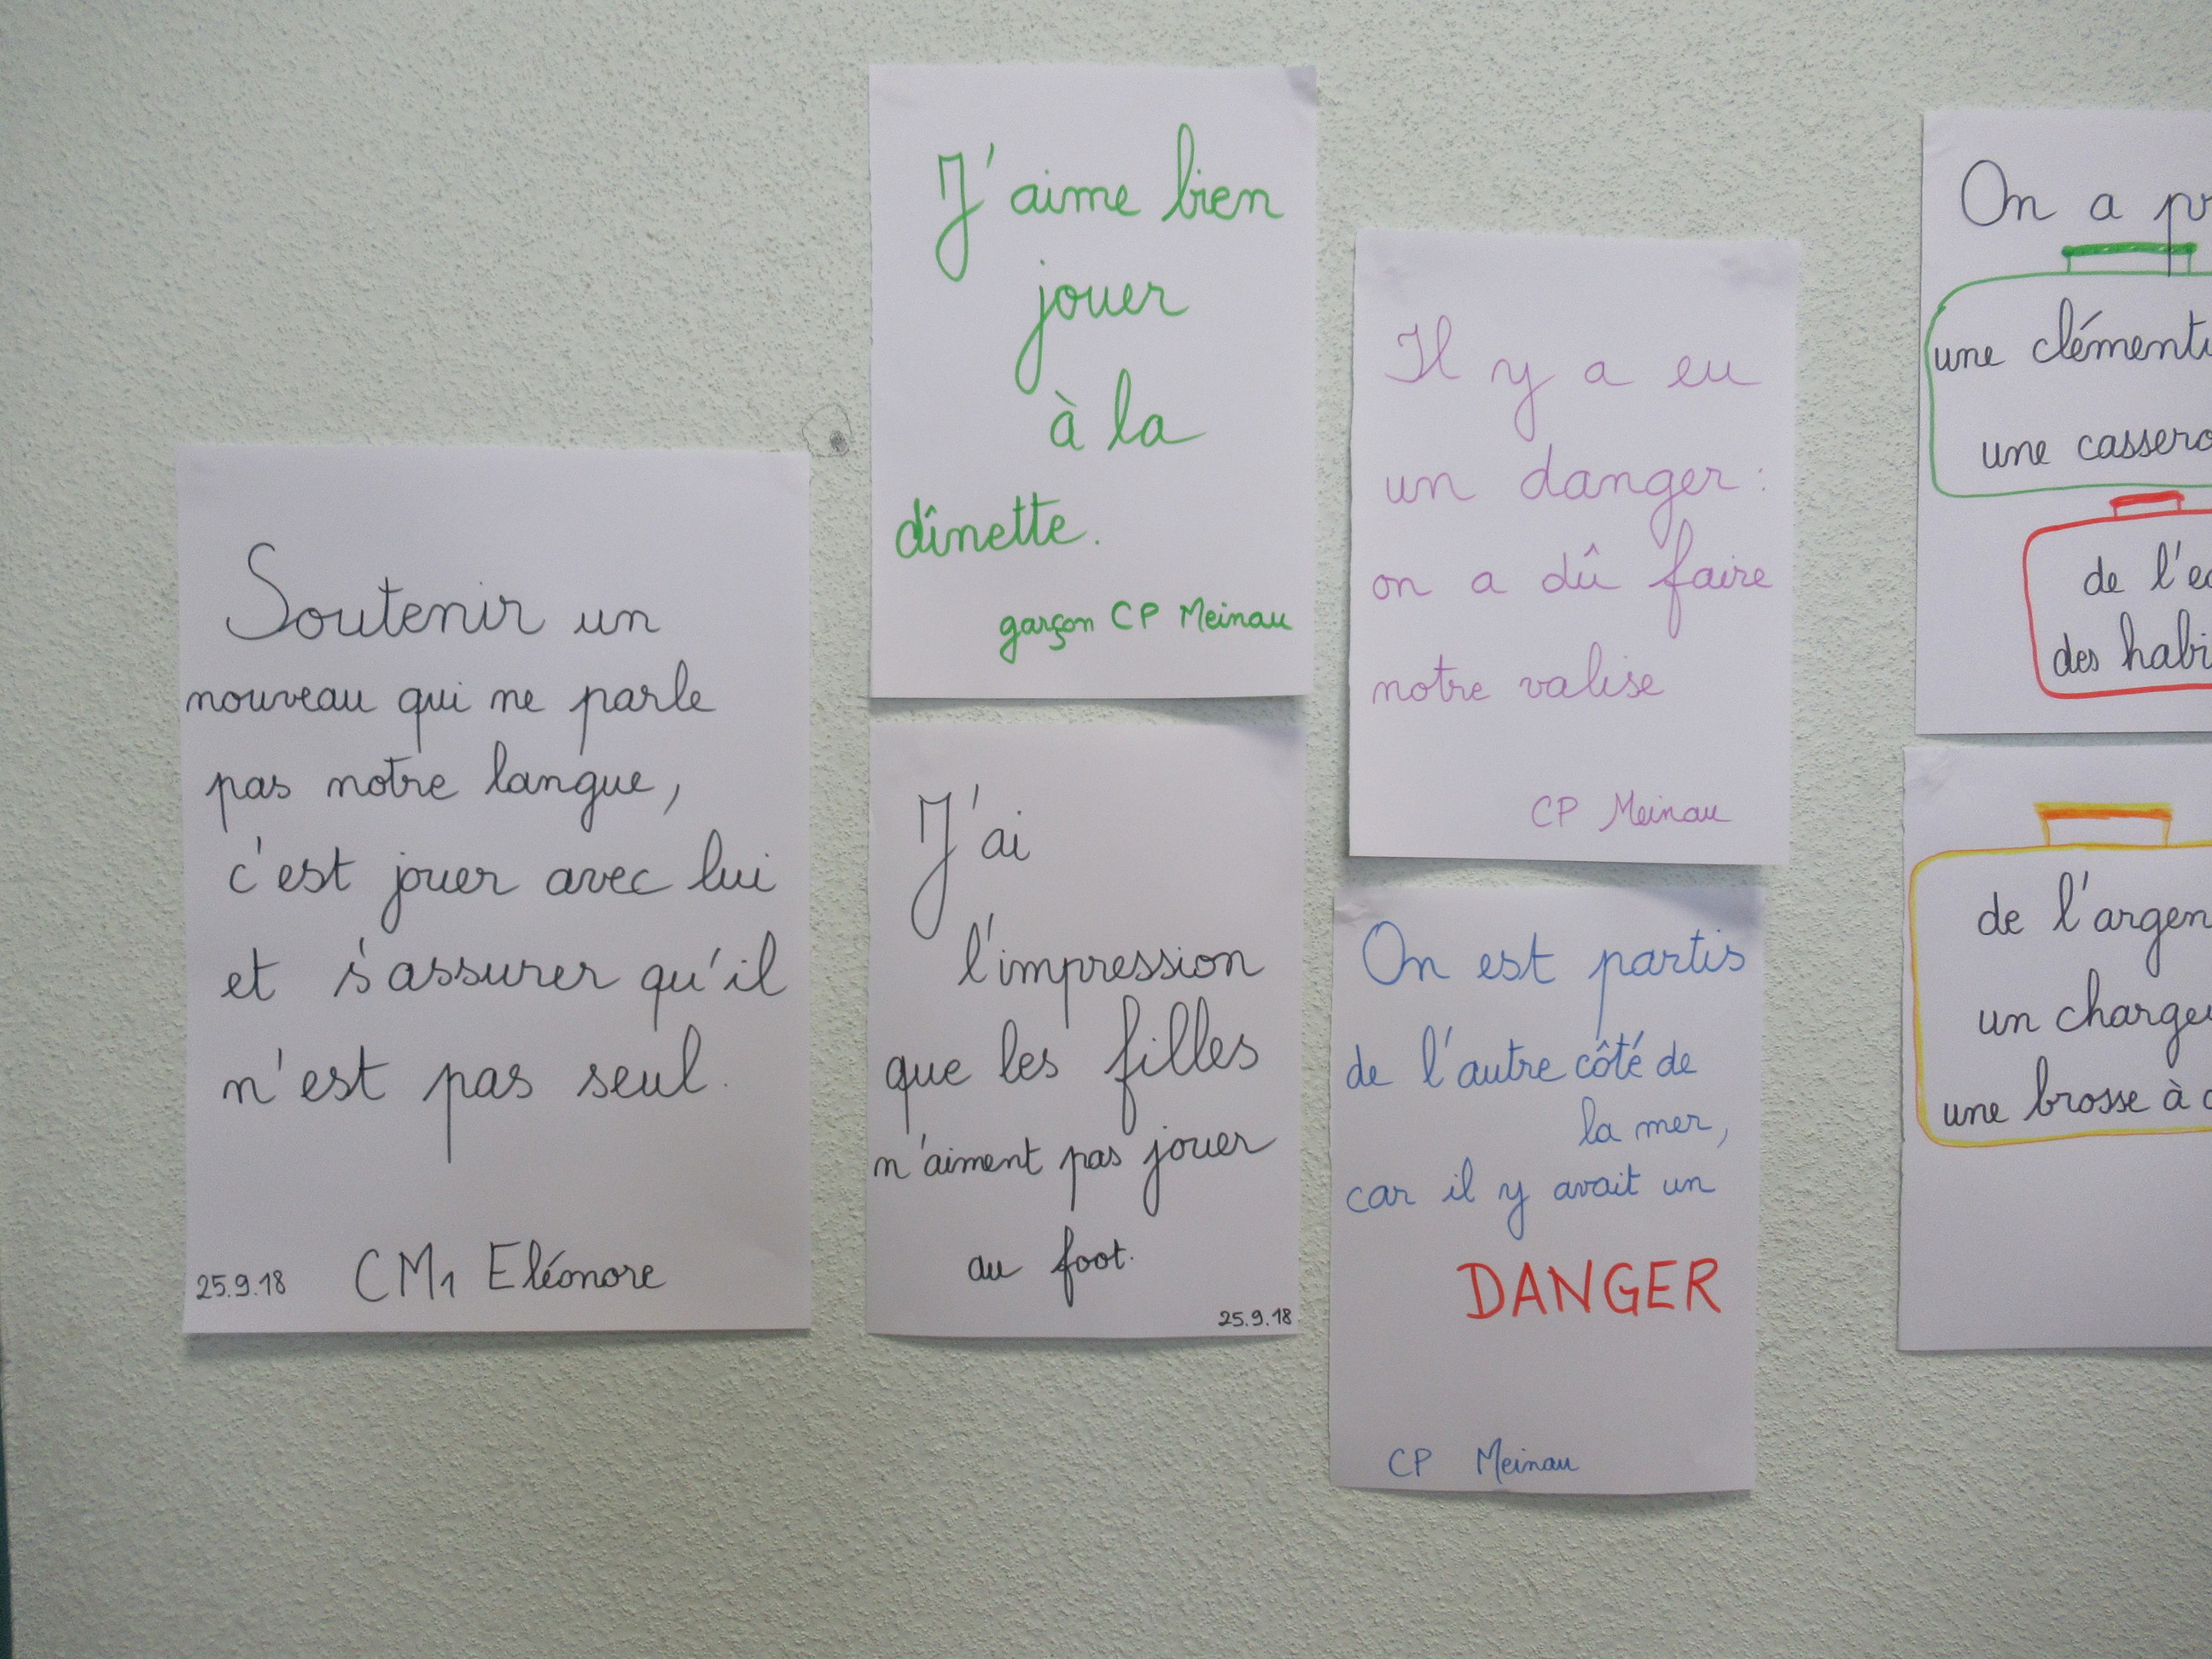 Soutenir un
nouveau qui ne parle
pas notre langue,
c'est jouer avec lui
et s'assurer qu'il
n'est pas seul.
25.9.18 CM1 Eléonore
J'aime bien
jouer
à la
dînette.
garçon CP Meinau
J'ai
l'impression
que les filles
n'aiment pas jouer
au foot.
25.9.18
Il y a eu
un danger :
on a dû faire
notre valise
CP Meinau
On est partis
de l'autre côté de
la mer,
car il y avait un
DANGER
CP Meinau
On a
une
une
de
des
de
un
une brosse à